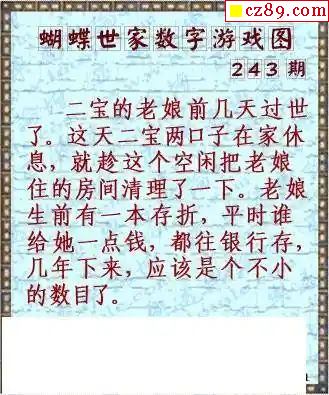 cz89.com
蝴蝶世家数字游戏图
243期
二宝的老娘前几天过世
了。这天二宝两口子在家休
息，就趁这个空闲把老娘
住的房间清理了一下。老娘
生前有一本存折，平时谁
给她一点钱，都往银行存，
几年下来，应该是个不小
的数目了。